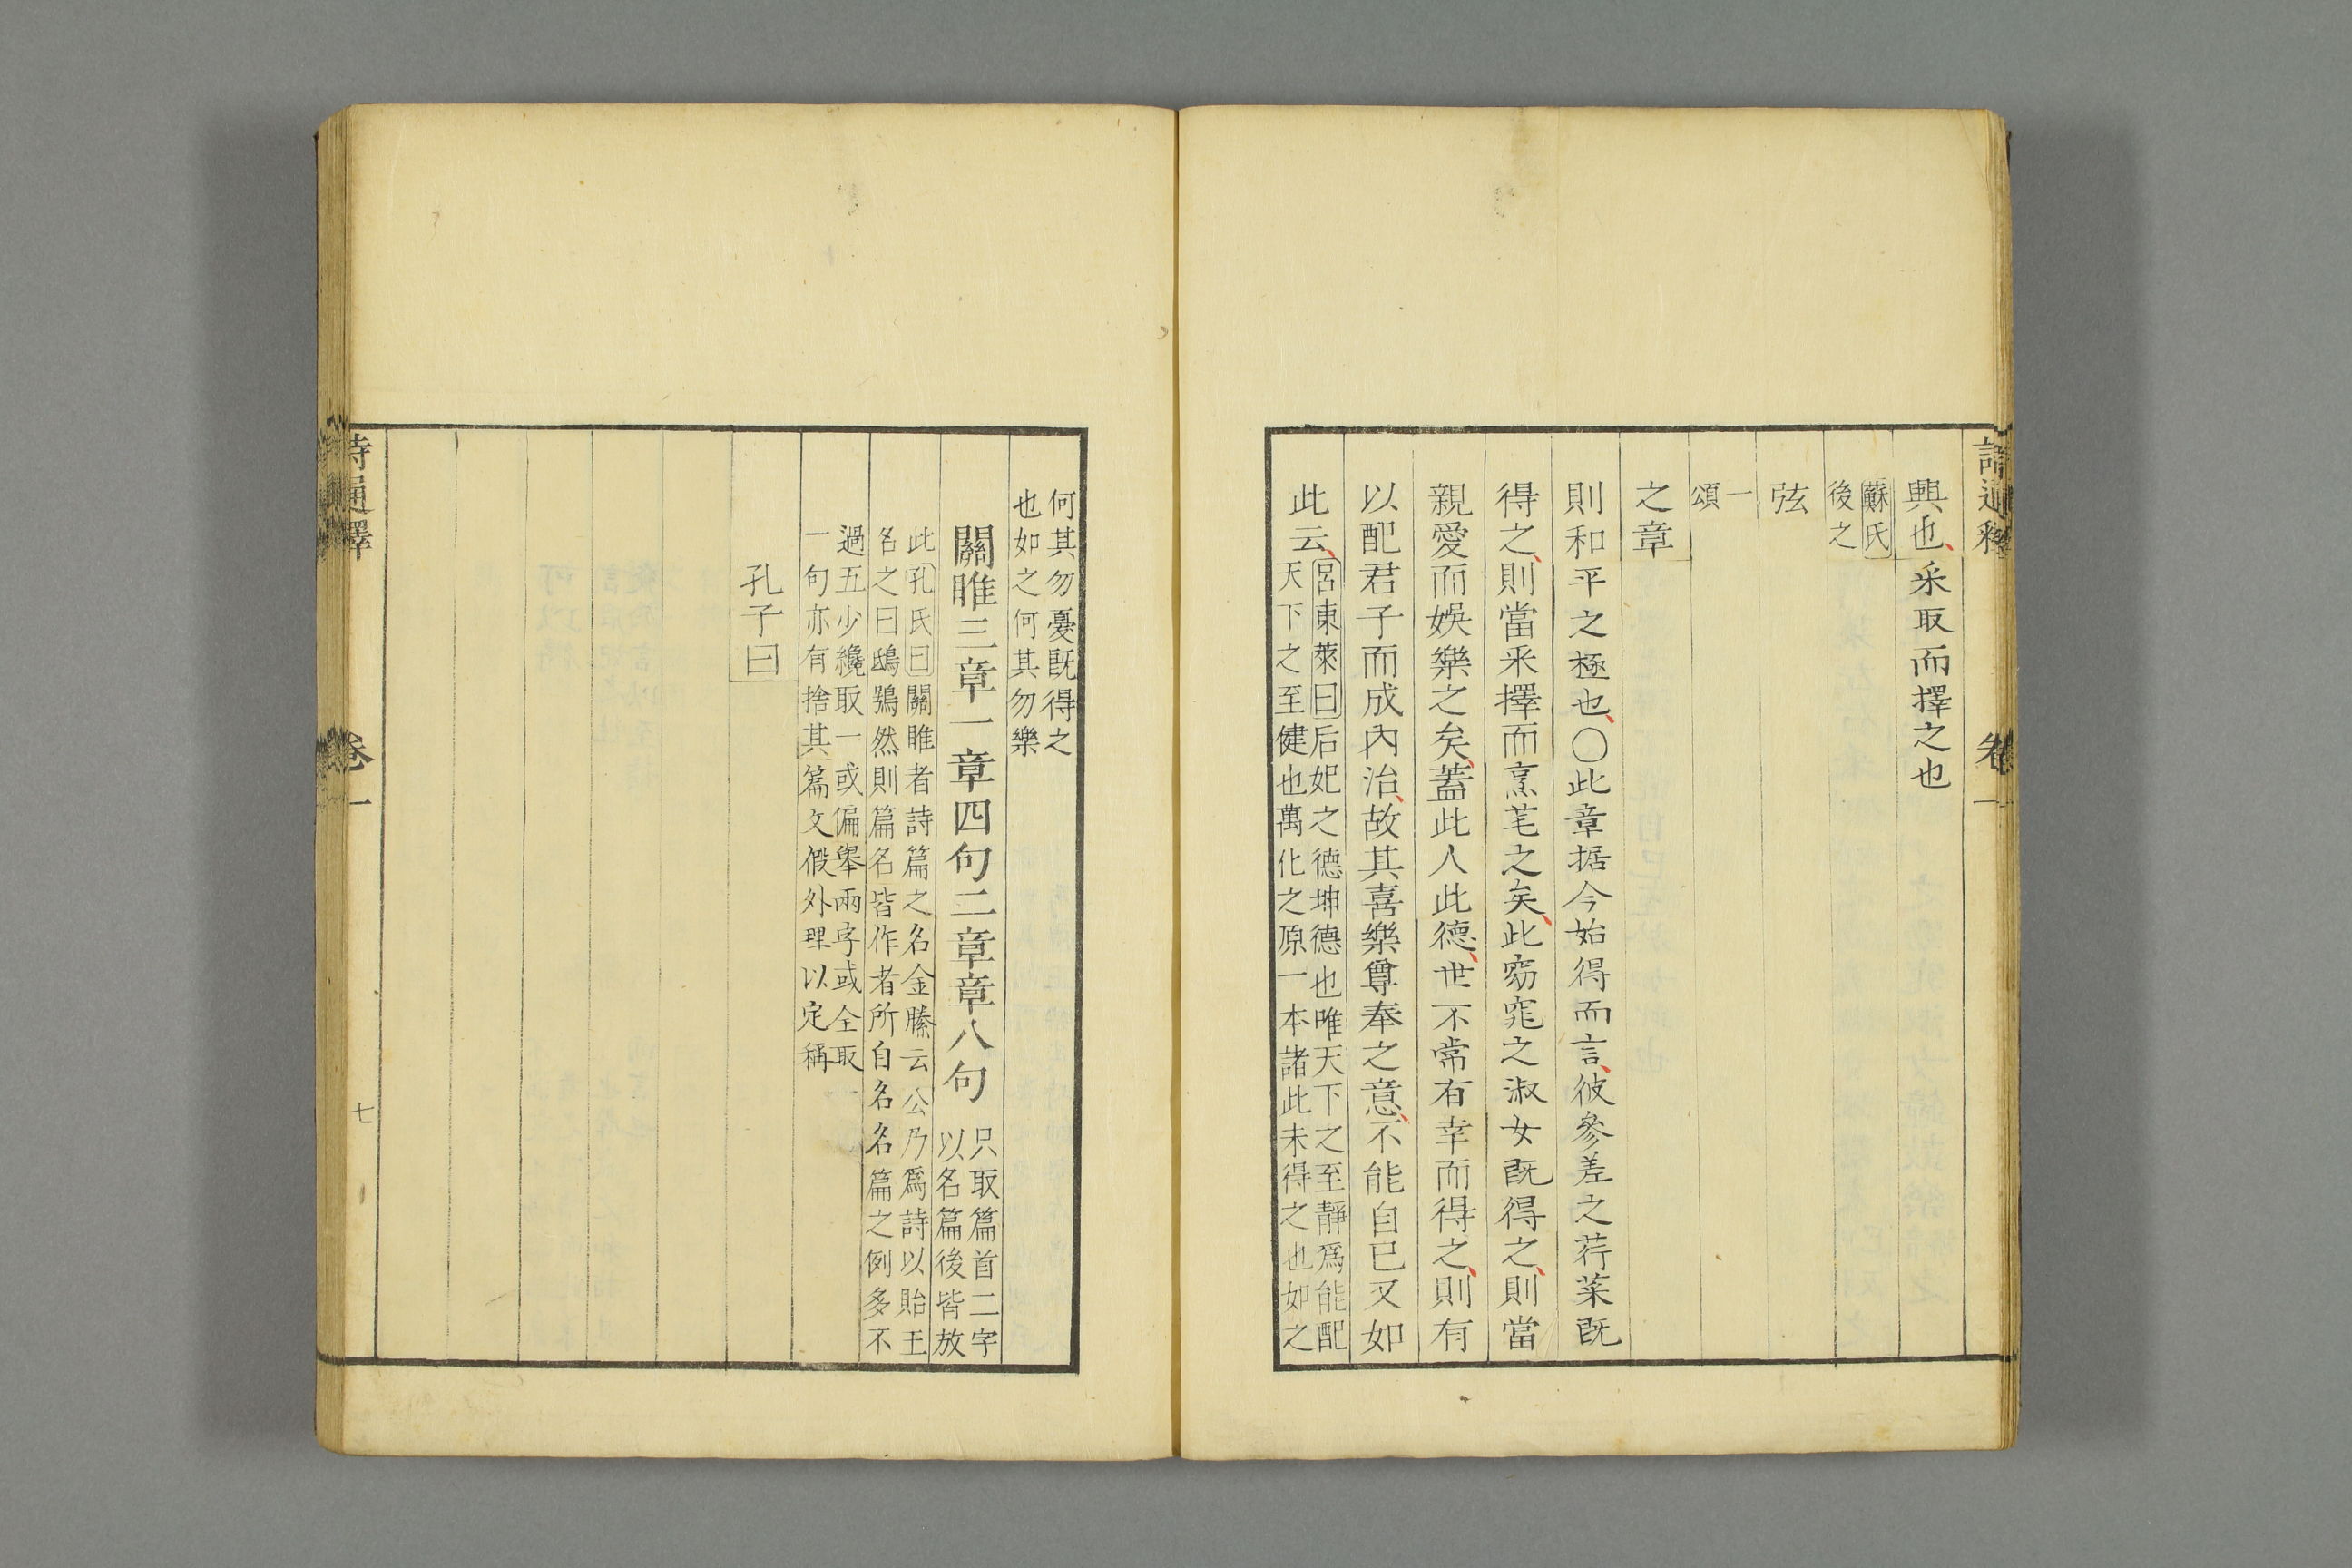 詩通釋 卷一
興也采取而擇之也
蘇氏
後之
弦
一
頌
之章
則和平之極也〇此章据今始得而言彼參差之荇菜既
得之則當采擇而烹芼之矣此窈窕之淑女既得之則當
親愛而娛樂之矣蓋此人此德世不常有幸而得之則有
以配君子而成內治故其喜樂尊奉之意不能自已又如
此云
呂東萊曰后妃之德坤德也唯天下之至靜爲能配
天下之至健也萬化之原一本諸此未得之也如之
何其勿憂既得之
也如之何其勿樂
關雎三章一章四句二章章八句
只取篇首二字
以名篇後皆放
此孔氏曰關雎者詩篇之名金縢云公乃爲詩以貽王
名之曰鴟鴞然則篇名皆作者所自名名篇之例多不
過五少纔取一或偏舉兩字或全取
一句亦有捨其篇文假外理以定稱
孔子曰
詩通釋 卷一 七